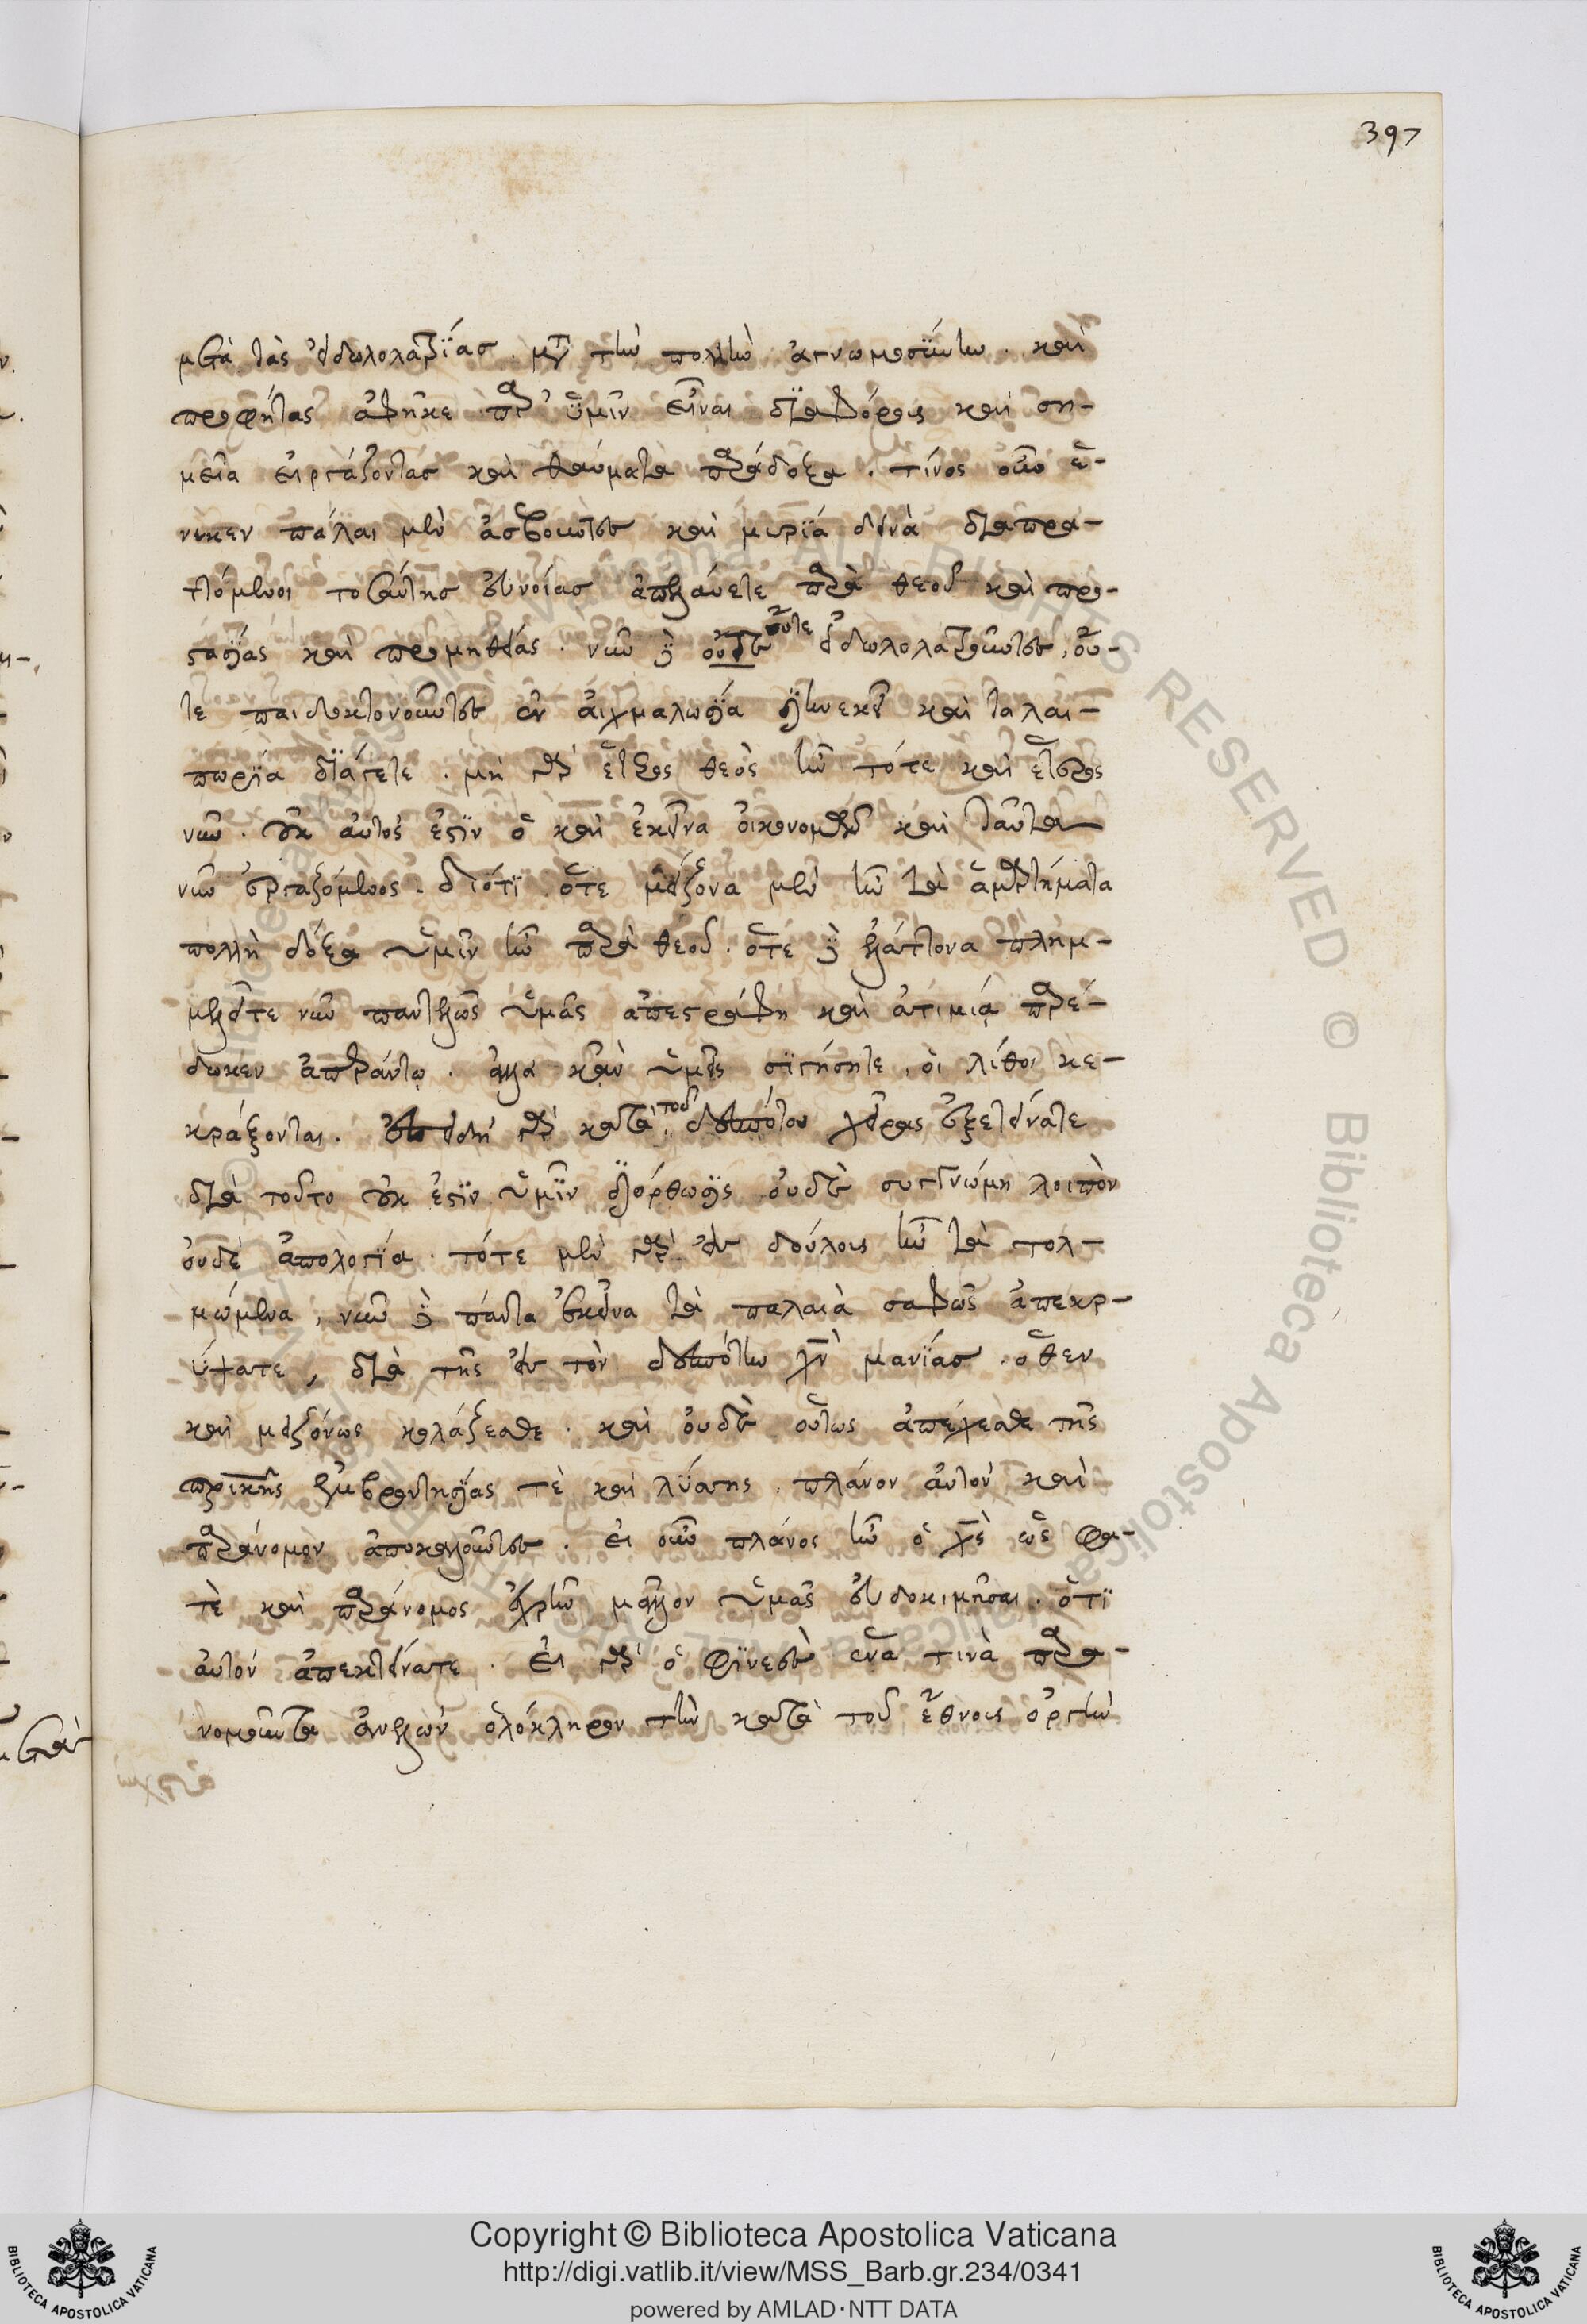 397
μετὰ τὰς εἰδωλολατρίας. μετὰ τὴν πολλὴν ἀγνωμοσύνην. καὶ
προφήτας ἀφῆκε παρ' ὑμῖν εἶναι διαφόρους καὶ ση-
μεῖα εἰργάζοντας καὶ θαύματα παράδοξα. τίνος οὖν ἕ-
νεκεν πάλαι μὲν ἀσεβοῦντες καὶ μυρία δεινὰ διαπρα-
ττόμενοι τοσαύτης εὐνοίας ἀπελαύετε παρὰ θεοῦ καὶ προ-
στασίας καὶ προμηθείας. νῦν δὲ οὐδὲ οὔτε εἰδωλολατροῦντες, οὔ-
τε παιδοκτονοῦντες ἐν αἰχμαλωσία διηνεκεῖ καὶ ταλαι-
πωρία διάγετε. μὴ γὰρ ἕτερος θεὸς ἦν τότε καὶ ἕτερος
νῦν. οὐκ αὐτός ἐστιν ὁ καὶ ἐκεῖνα οἰκονομῶν καὶ ταῦτα
νῦν ἐργαζόμενος. διότι ὅτε μείζονα μὲν ἦν τὰ ἁμαρτήματα
πολλὴ δόξα ὑμῖν ἦν παρὰ θεοῦ. ὅτε δὲ ἐλάττονα πλημ-
μελεῖτε νῦν παντελῶς ὑμᾶς ἀπεστράφη καὶ ἀτιμία παρέ-
δωκεν ἀπεράντω. ἀλλὰ κἂν ὑμεῖς σιγήσητε, οἱ λίθοι κε-
κράξονται. ἐπειδὴ γὰρ κατὰ τοῦ δεσπότου χεῖρας ἐξετείνατε
διὰ τοῦτο οὐκ ἔστιν ὑμῖν διόρθωσις οὐδὲ συγγνώμη λοιπὸν
οὐδὲ ἀπολογία. τότε μὲν γὰρ εἰς δούλους ἦν τὰ τολ-
μώμενα, νῦν δὲ πάντα ἐκεῖνα τὰ παλαιὰ σαφῶς ἀπεκρ-
ύψατε, διὰ τῆς εἰς τὸν δεσπότην χν μανίας. ὅθεν
καὶ μειζόνως κολάζεσθε. καὶ οὐδὲ οὕτως ἀπέχεσθε τῆς
πρικῆς ἐμβροντησίας τὲ καὶ λύσσης, πλάνον αὐτὸν καὶ
παράνομον ἀποκαλοῦντες. εἰ οὖν πλάνος ἦν ὁ χς ὡς φα-
τὲ καὶ παράνομος ἐχρῆν μᾶλλον ὑμᾶς εὐδοκιμῆσαι. ὅτι
αὐτὸν ἀπεκτείνατε. εἰ γὰρ ὁ φινεὲς ἕνα τινὰ παρα-
νομοῦντα ἀνελὼν ὁλόκληρον τὴν κατὰ τοῦ ἔθνους ὀργὴν
Copyright © Biblioteca Apostolica Vaticana
http://digi.vatlib.it/view/MSS_Barb.gr.234/0341
powered by AMLAD·NTT DATA